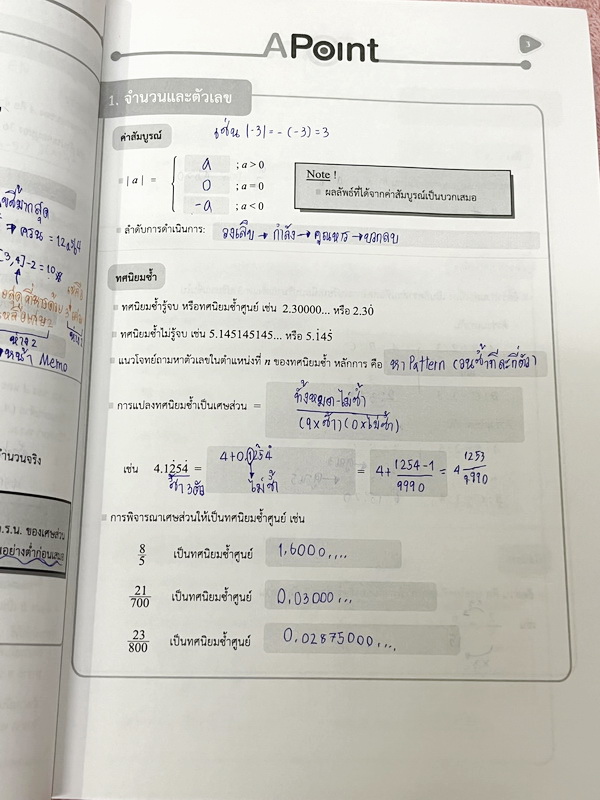 APoint
3
1. จำนวนและตัวเลข
ค่าสัมบูรณ์
เช่น |-3| = -(-3) = 3
| a | =
a ; a > 0
0 ; a = 0
-a ; a < 0
Note !
ผลลัพธ์ที่ได้จากค่าสัมบูรณ์เป็นบวกเสมอ
ลำดับการดำเนินการ: วงเล็บ → กำลัง → คูณหาร → บวกลบ
ทศนิยมซ้ำ
ทศนิยมซ้ำรู้จบ หรือทศนิยมซ้ำศูนย์ เช่น 2.30000... หรือ 2.30̇
ทศนิยมซ้ำไม่รู้จบ เช่น 5.145145145... หรือ 5.1̇45̇
แนวโจทย์ถามหาตัวเลขในตำแหน่งที่ n ของทศนิยมซ้ำ หลักการ คือ หา Pattern (วนซ้ำทีละกี่ตัว)
การแปลงทศนิยมซ้ำเป็นเศษส่วน =
ทั้งหมด-ไม่ซ้ำ
(9×ซ้ำ)(0×ไม่ซ้ำ)
เช่น 4.12̇54̇ = 4+0.12̇54̇ = 4+ 1254-1/9990 = 4 1253/9990
ซ้ำ 3 ตัว
ไม่ซ้ำ
การพิจารณาเศษส่วนให้เป็นทศนิยมซ้ำศูนย์ เช่น
8/5 เป็นทศนิยมซ้ำศูนย์ 1.6000....
21/700 เป็นทศนิยมซ้ำศูนย์ 0.03000...
23/800 เป็นทศนิยมซ้ำศูนย์ 0.02875000....
[3,4]-2=10
หน้า Memo
ำนวนจริง
.ร.น. ของเศษส่วน
อย่างต่ำก่อนเสมอ